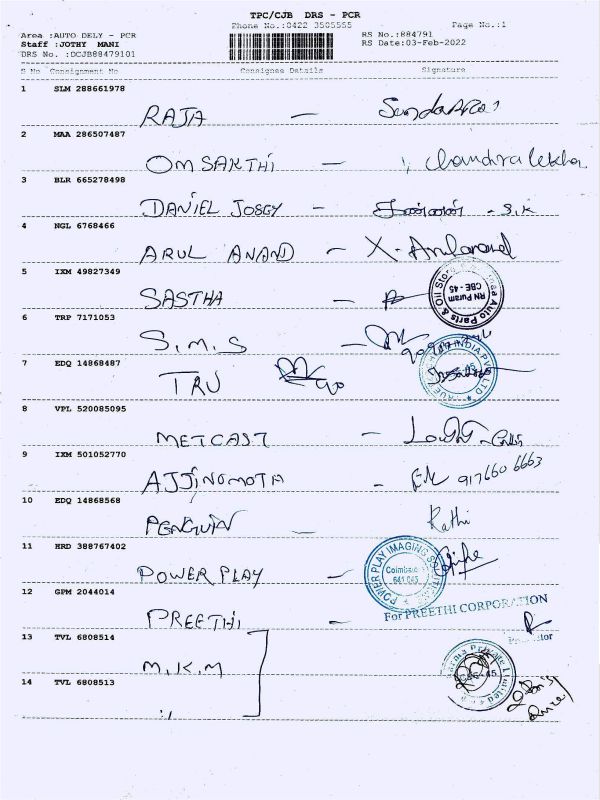 TPC/CJB DRS - PCR
Phone No.:0422 3505555
Page No.:1
Area :AUTO DELY - PCR
RS No.:884791
Staff :JOTHY MANI
RS Date:03-Feb-2022
DRS No. :DCJB88479101
S No Consignment No Consignee Details Signature
1 SLM 288661978
RAJA -
2 MAA 286507487
OM SAKTHI - Chandralekha
3 BLR 665278498
DANIEL JOSEY - S.K
4 NGL 6768466
ARUL ANAND - X. Arulanand
5 IXM 49827349
SASTHA -
Auto Parts & Oil Store
RN Puram
CBE - 45
6 TRP 7171053
S.M.S -
7 EDQ 14868487
TRU
INDIA PVT LTD
8 VPL 520085095
METCAST -
9 IXM 501052770
AJJINOMOTA - 917660 6663
10 EDQ 14868568
PENGUIN - Rathi
11 HRD 388767402
POWER PLAY -
POWER PLAY IMAGING
Coimbatore
641 045
12 GPM 2044014
PREETHI
For PREETHI CORPORATION
13 TVL 6808514
M.K.M
Private Limited
14 TVL 6808513